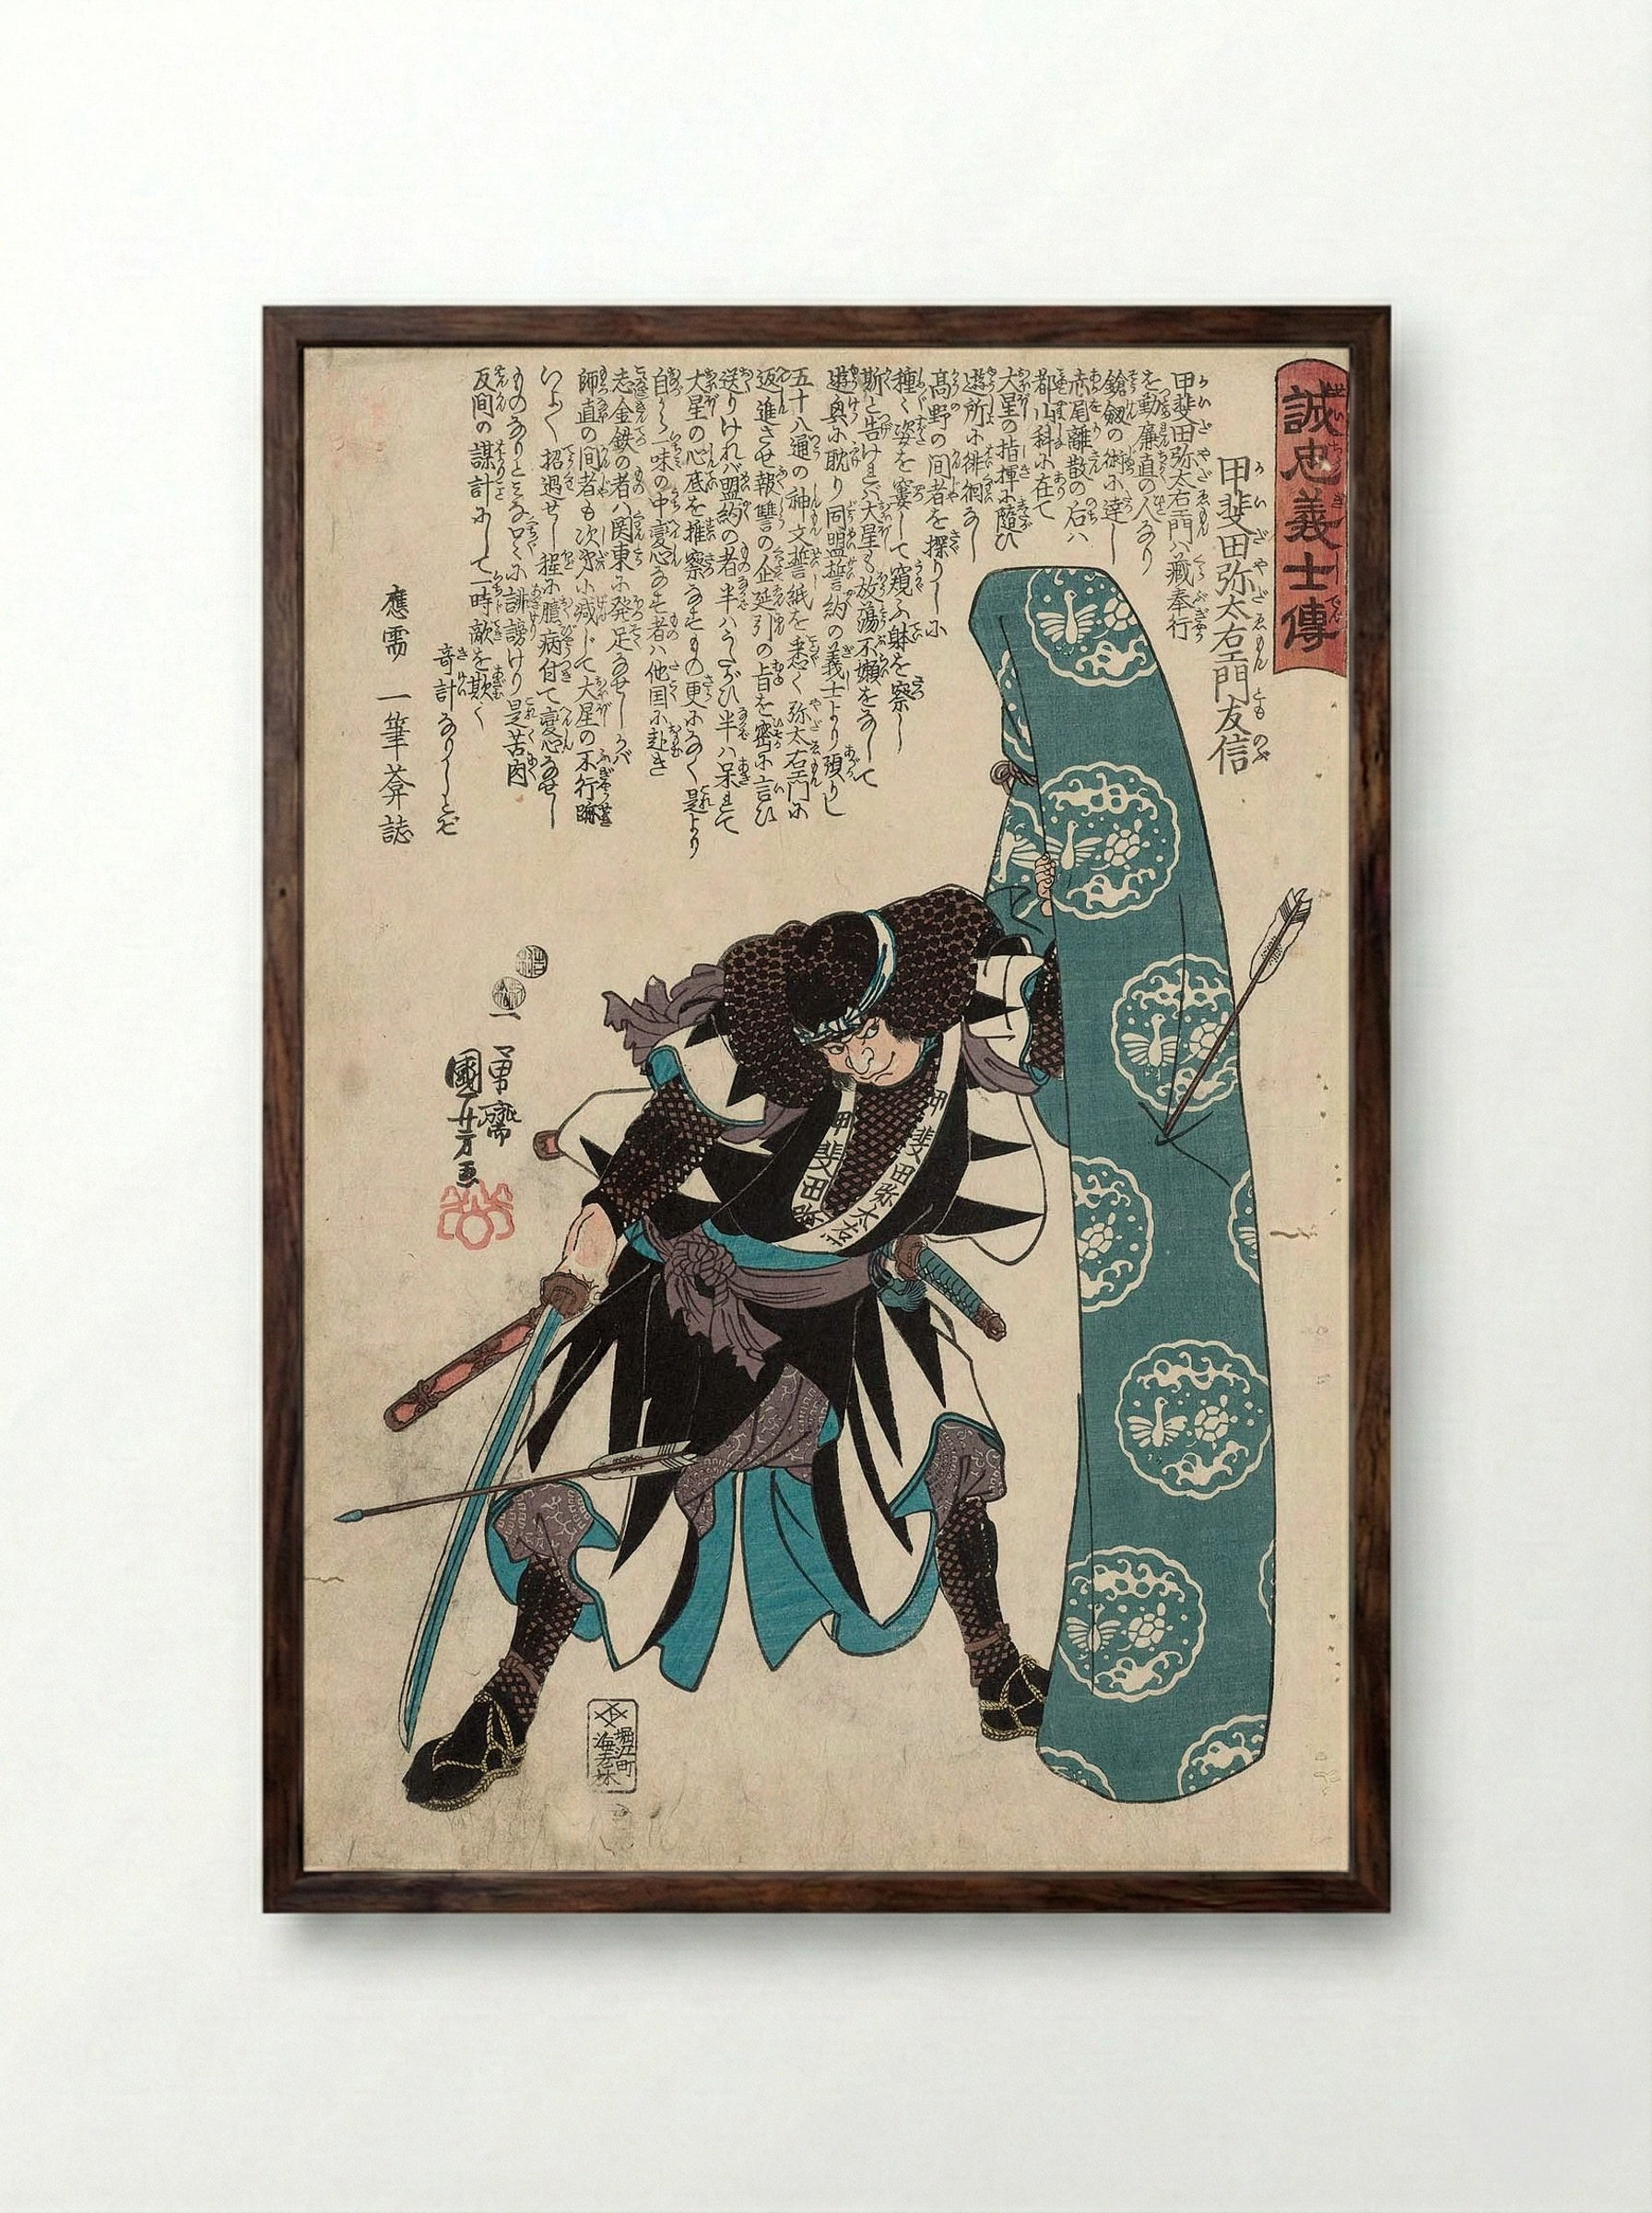 誠忠義士傳
甲斐田弥太右エ門友信
甲斐田弥太右エ門ハ蔵奉行
を勤廉直の人なり
鎗劔の術に達し
赤尾離散の后ハ
都山科に在て
大星の指揮に随ひ
遊所に徘徊なし
髙野の间者を探りしに
種〻姿を窶して窺ふ躰を察し
斯と告けれバ大星も放蕩不嬾をなして
遊興に耽り同盟誓約の義士より預りし
五十八通の神文誓紙を悉く弥太右エ門に
返進させ報讐の企延引の旨を密に言ひ
送りけれバ盟約の者半ハうたがひ半ハ呆れて
大星の心底を推察なすもの更になく是より
自らと一味の中変心なす者ハ他国に赴き
志金鉄の者ハ関東に発足なせしかバ
師直の间者も次㐧に减じて大星の不行跡
いよ〱招過せし程に臆病付て変心なせし
ものなりとみな口〻に誹謗けり是苦肉
反间の謀計にして一時敵を欺く
竒計なりしとぞ
應需 一筆菴誌
一勇齋
國芳画
甲斐田弥
甲斐田弥太右
堀江町
海老林